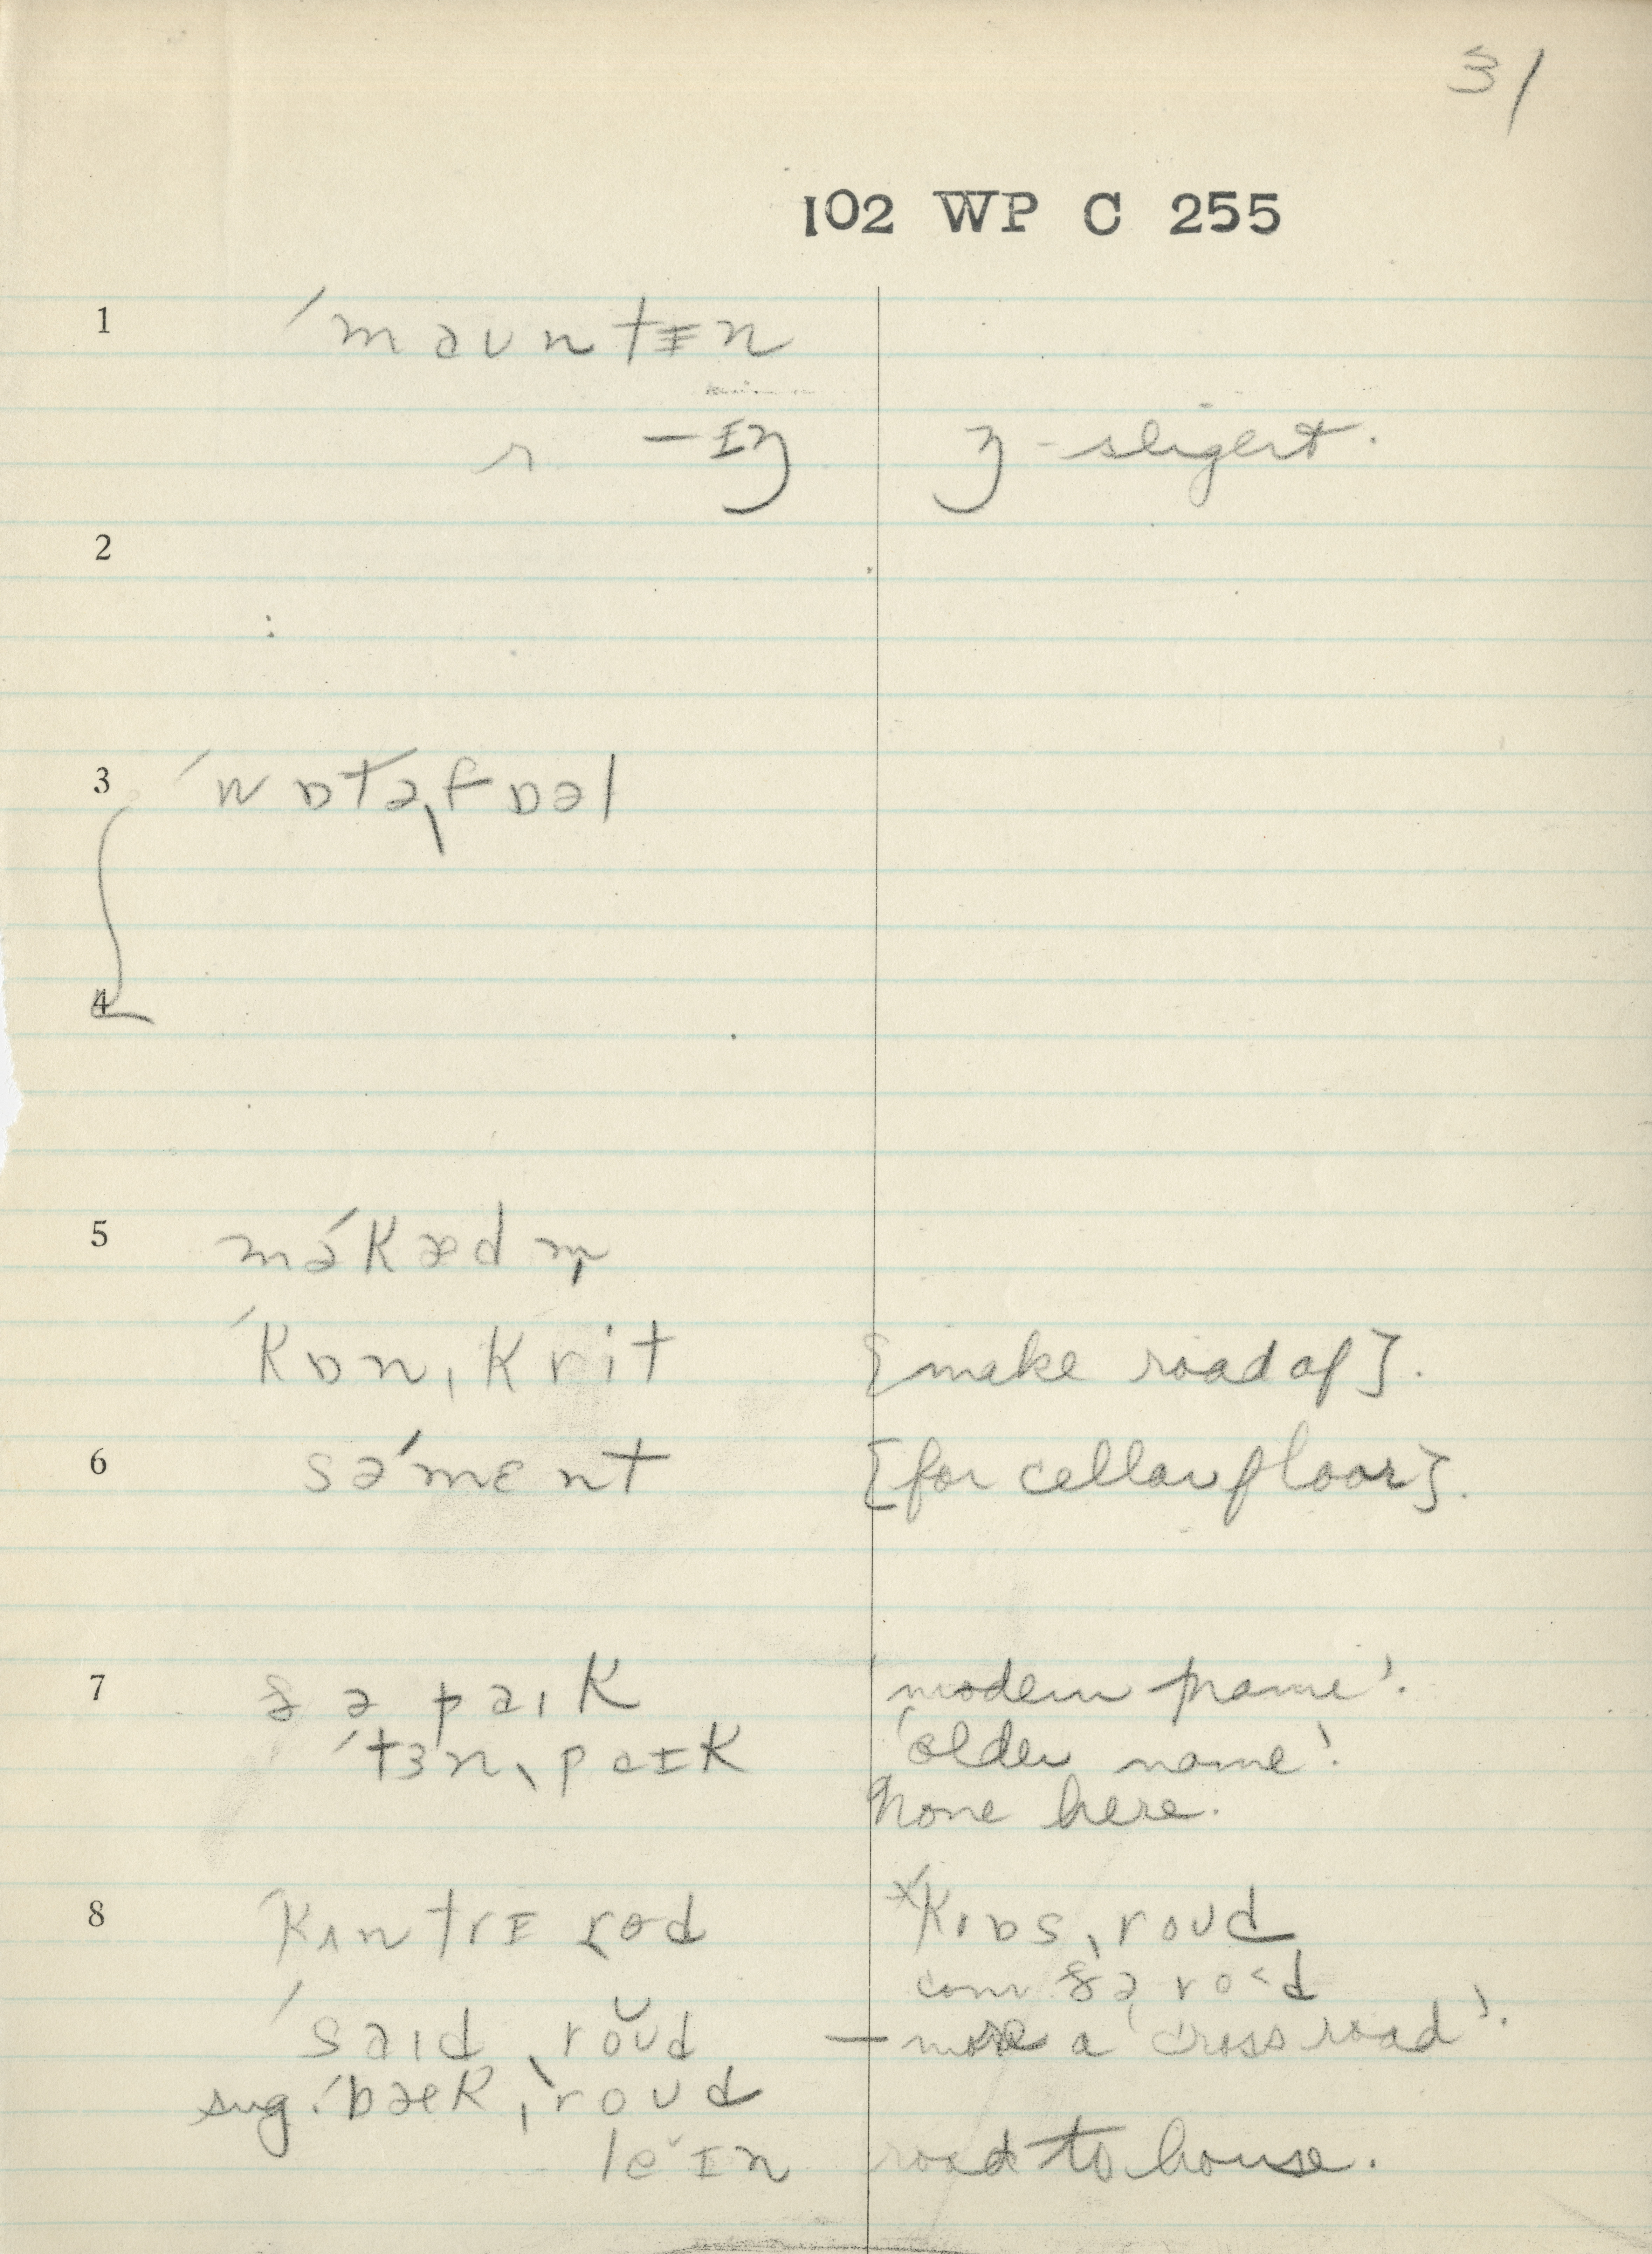 31
102 WP C 255
1 ˈmaʊntɪn
r —ɪŋ ŋ-sligert.
2
3 ˈwɒtəˌfɒəl
4
5 məˈkædm̩
ˈkɒnˌkrit [make road of].
6 səˈmɛnt [for cellar floor].
7 ðə paɪk 'modern name'.
ˈtɜnˌpaɪk 'older name'.
None here.
8 ˈkʌntrɪ rod ˣˈkrɒsˌroʊd
com ðə rod
ˈsaɪdˌroʊd — more a 'cross road'.
sug. ˈbækˌroʊd
leɪn road to house.